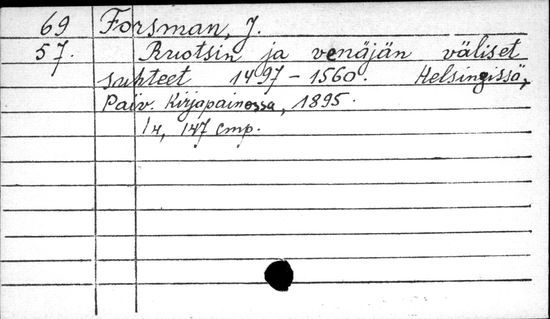 69 Forsman, J.
57. Ruotsin ja venäjän väliset
suhteet 1497-1560. Helsingissä,
Päiv. Kirjapainossa, 1895.
14, 147 cmp.